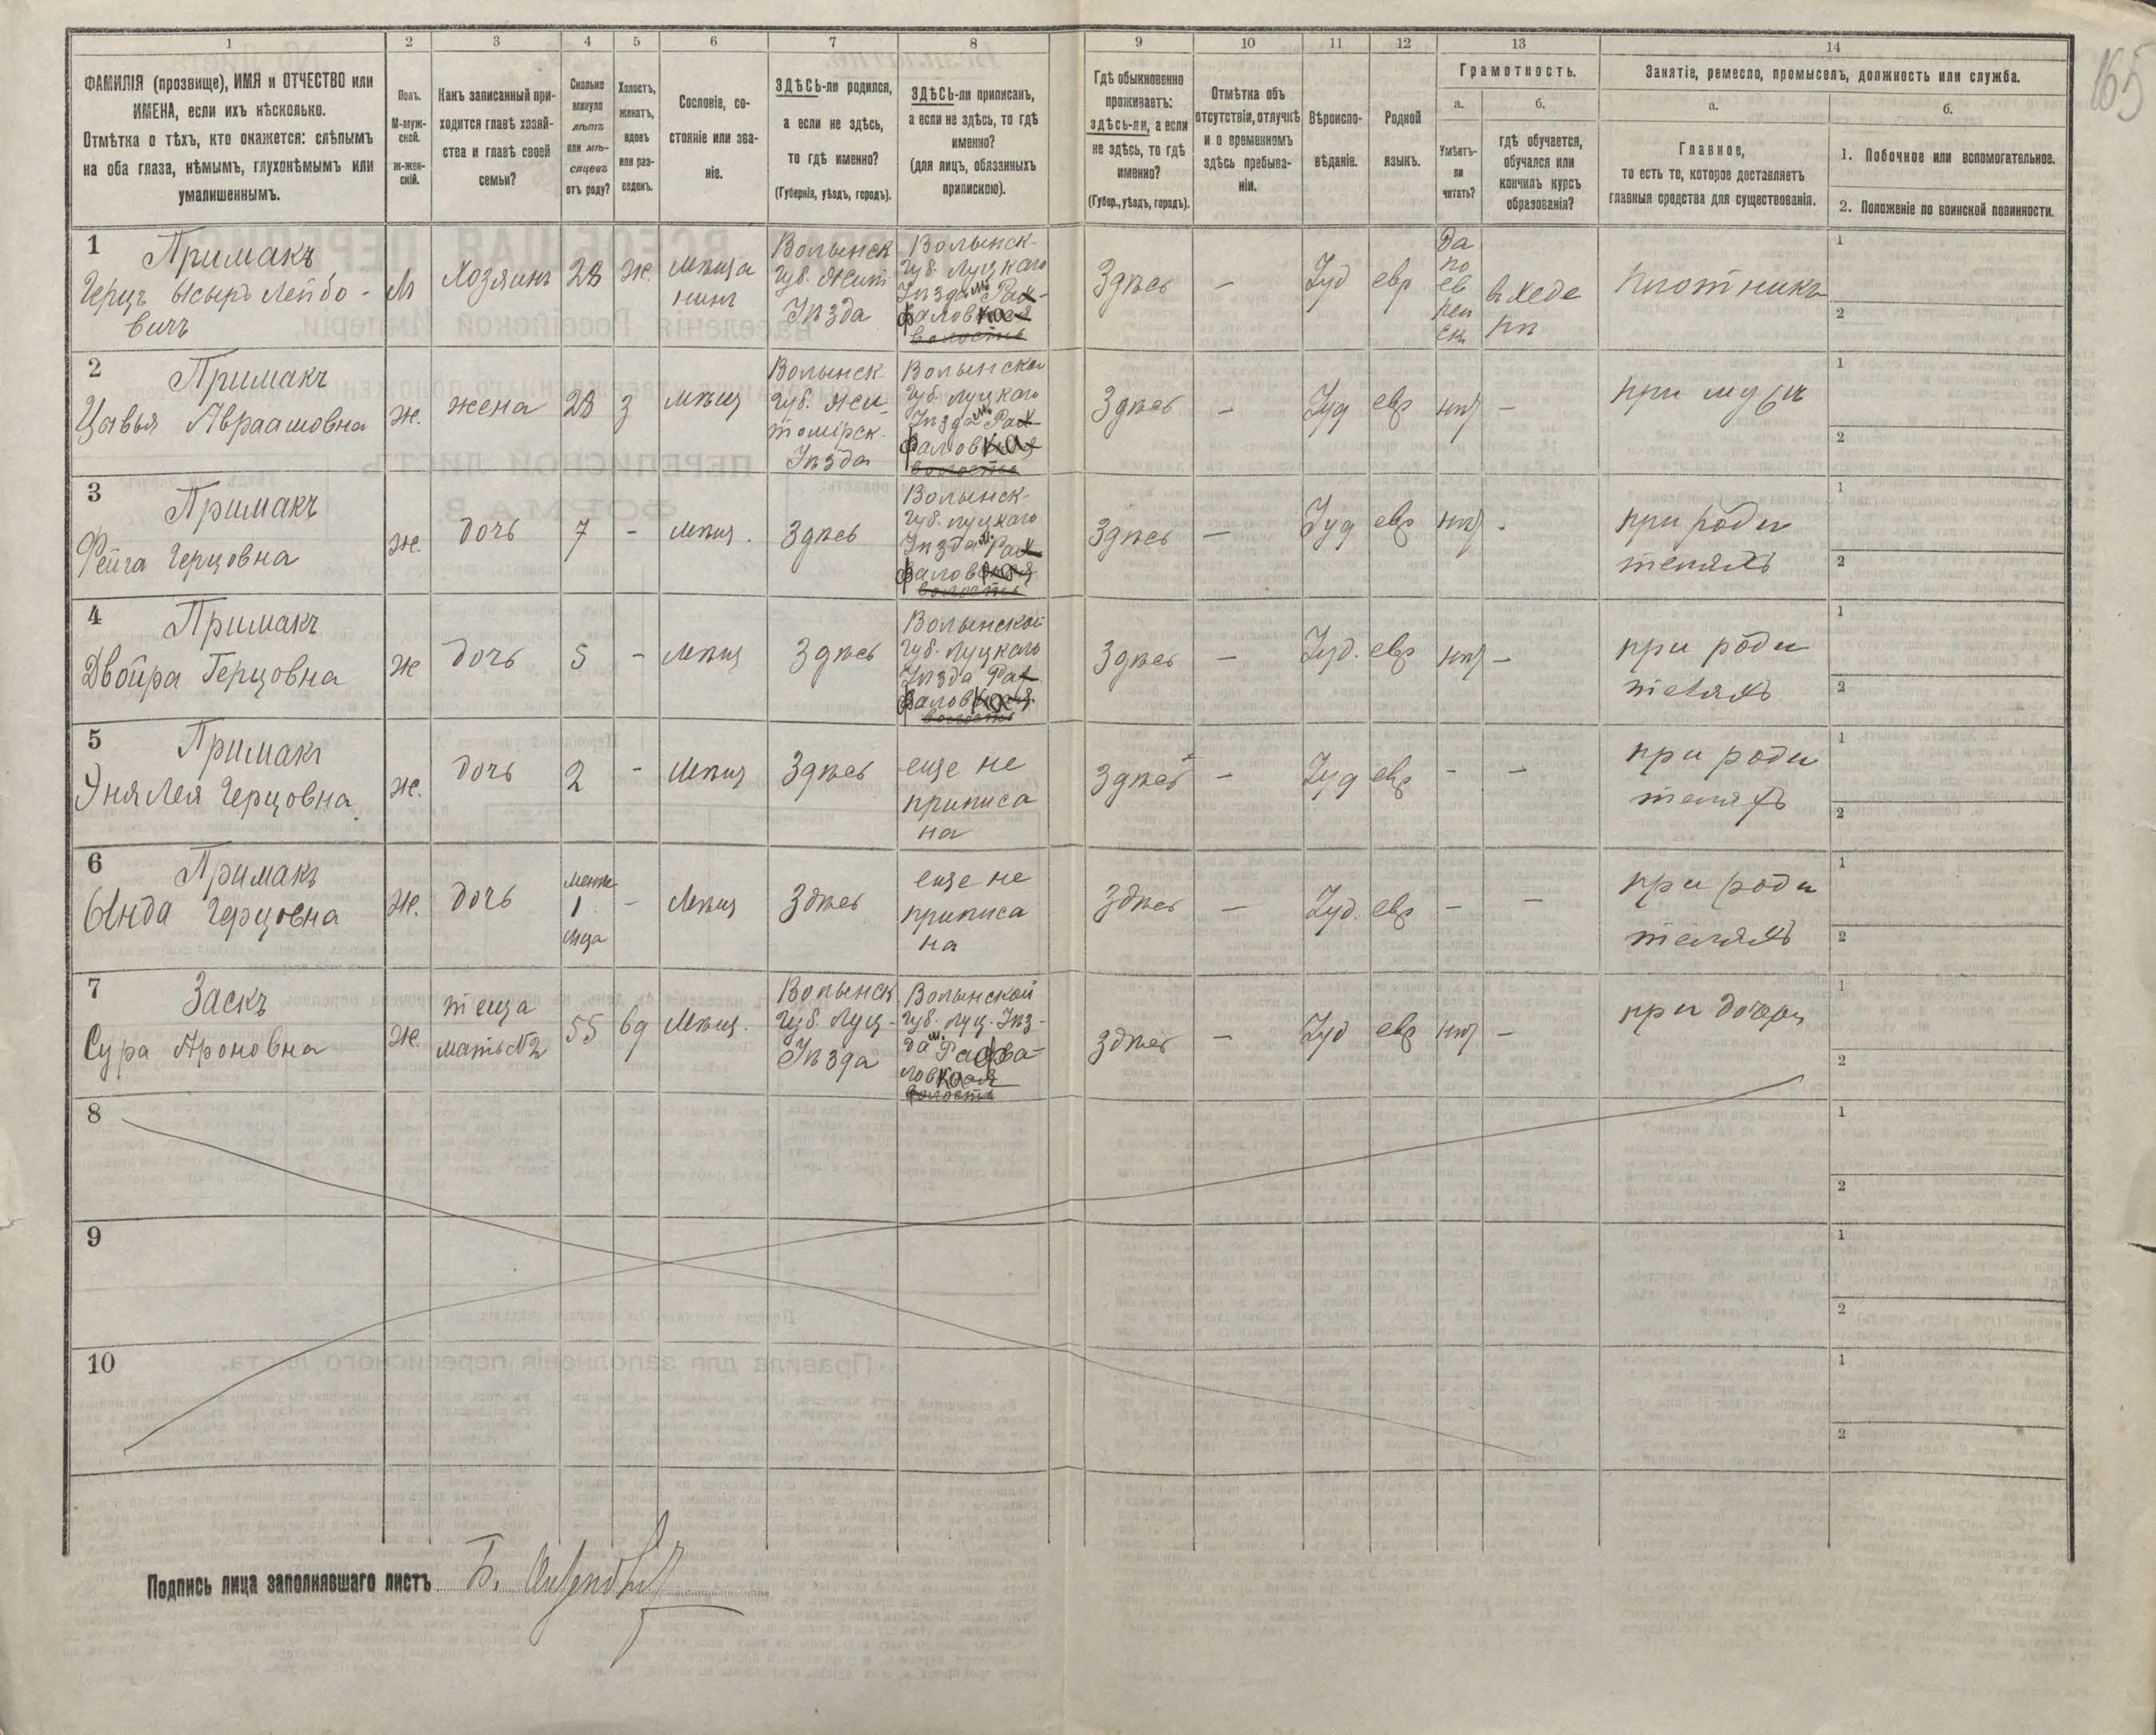 165
1
2
3
4
5
6
7
8
9
10
11
12
13
14
ФАМИЛІЯ (прозвище), ИМЯ и ОТЧЕСТВО или
ИМЕНА, если ихъ нѣсколько.
Отмѣтка о тѣхъ, кто окажется: слѣпымъ
на оба глаза, нѣмымъ, глухонѣмымъ или
умалишеннымъ.
Полъ.
М-муж-
ской.
Ж-жен-
скій.
Какъ записанный при-
ходится главѣ хозяй-
ства и главѣ своей
семьи?
Сколько
минуло
лѣтъ
или мѣ-
сяцевъ
отъ роду?
Холостъ,
женатъ,
вдовъ
или раз-
веденъ.
Сословіе, со-
стояніе или зва-
ніе.
ЗДѢСЬ-ли родился,
а если не здѣсь,
то гдѣ именно?
(Губернія, уѣздъ, городъ).
ЗДѢСЬ-ли приписанъ,
а если не здѣсь, то гдѣ
именно?
(для лицъ, обязанныхъ
припискою).
Гдѣ обыкновенно
проживаетъ:
здѣсь-ли, а если
не здѣсь, то гдѣ
именно?
(Губер., уѣздъ, городъ).
Отмѣтка объ
отсутствіи, отлучкѣ
и о временномъ
здѣсь пребыва-
ніи.
Вѣроиспо-
вѣданіе.
Родной
языкъ.
Грамотность.
а.
Умѣетъ-
ли
читать?
б.
гдѣ обучается,
обучался или
кончилъ курсъ
образованія?
Занятіе, ремесло, промыселъ, должность или служба.
а.
Главное,
то есть то, которое доставляетъ
главныя средства для существованія.
б.
1. Побочное или вспомогательное.
2. Положеніе по воинской повинности.
1
Примакъ
Герцъ Ысыръ Лейбо-
вичъ
М
Хозяинъ
28
ж.
мѣща
нинъ
Волынск
Губ. Жит.
Уѣзда
Волынск-
Губ. Луцкаго
Уѣзда м. Ра
фаловка
волость
Здѣсь
–
Іуд
евр
да
по
ев
рей
ск
в хеде
рѣ
плотникъ
1
2
2
Примакъ
Цывья Авраамовна
ж.
жена
28
З
мѣщ
Волынск
Губ. Жи-
томірск.
Уѣзда
Волынской
Губ. Луцкаго
Уѣзда м. Ра
фаловка
волость
Здѣсь
–
Іуд
евр
нѣт
–
при мужѣ
1
2
3
Примакъ
Фейга Герцовна
ж.
дочь
7
–
мѣщ.
Здѣсь
Волынск-
Губ. Луцкаго
Уѣзда м. Ра
фаловка
волость
Здѣсь
–
Іуд
евр
нѣт
-
при роди
теляхъ
1
2
4
Примакъ
Двойра Герцовна
ж
дочь
5
–
мѣщ
Здѣсь
Волынской
Губ. Луцкаго
Уѣзда Ра
фаловка
волость
Здѣсь
–
Іуд.
евр
нѣт
–
при роди
теляхъ
1
2
5
Примакъ
Эня Лея Герцовна
ж.
дочь
2
-
мѣщ
Здѣсь
еще не
приписа
на
Здѣсь
–
Іуд
евр
-
–
при роди
теляхъ
1
2
6
Примакъ
Ында Герцовна
ж.
дочь
менѣе
1
мца
–
мѣщ
Здѣсь
еще не
приписа
на
Здѣсь
–
Іуд.
евр
–
–
при роди
теляхъ
1
2
7
Заскъ
Сура Ароновна
ж.
теща
мать №2
55
вд
мѣщ.
Волынск
Губ. Луц-
Уѣзда
Волынской
Губ. Луц. Уѣз-
да м. Рафа-
ловка
волость
Здѣсь
–
Іуд
евр
нѣт
–
при дочери
1
2
8
1
2
9
1
2
10
1
2
Подпись лица заполнявшаго листъ Б.